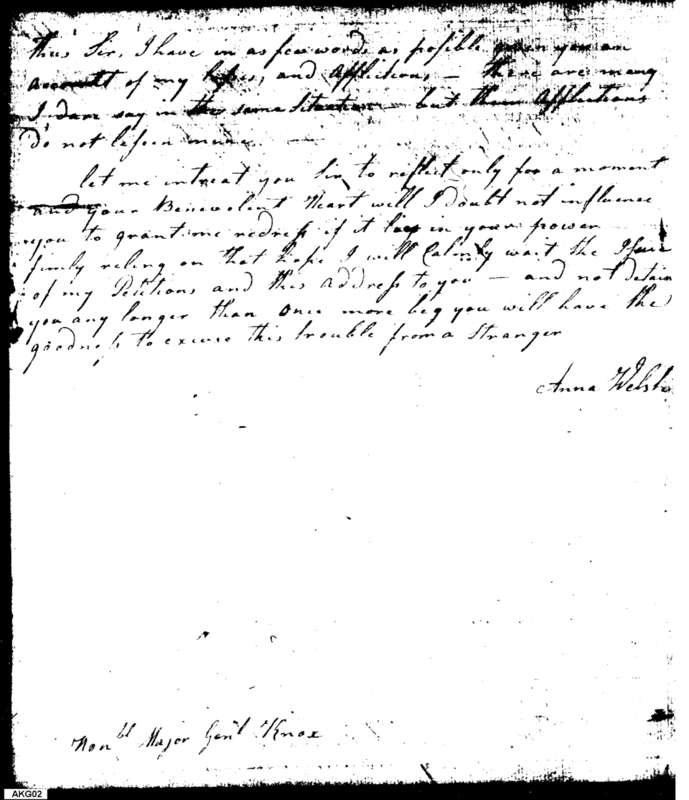 thus Sir, I have in as few words as posible given you an
account of my losses, and Afflictions — there are many
I dare say in the same Situation but their Afflictions
do not lessen mine. —
let me intreat you Sir to reflect only for a moment
and your Benevolent Heart will I doubt not influence
you to grant me redress if it lays in your power
firmly reling on that hope I will Calmly wait the Issue
of my Petitions and this address to you — and not detain
you any longer than Once more beg you will have the
goodness to excuse this trouble from a Stranger
Anna Welsh
Honbl Major Genl Knox
AKG02